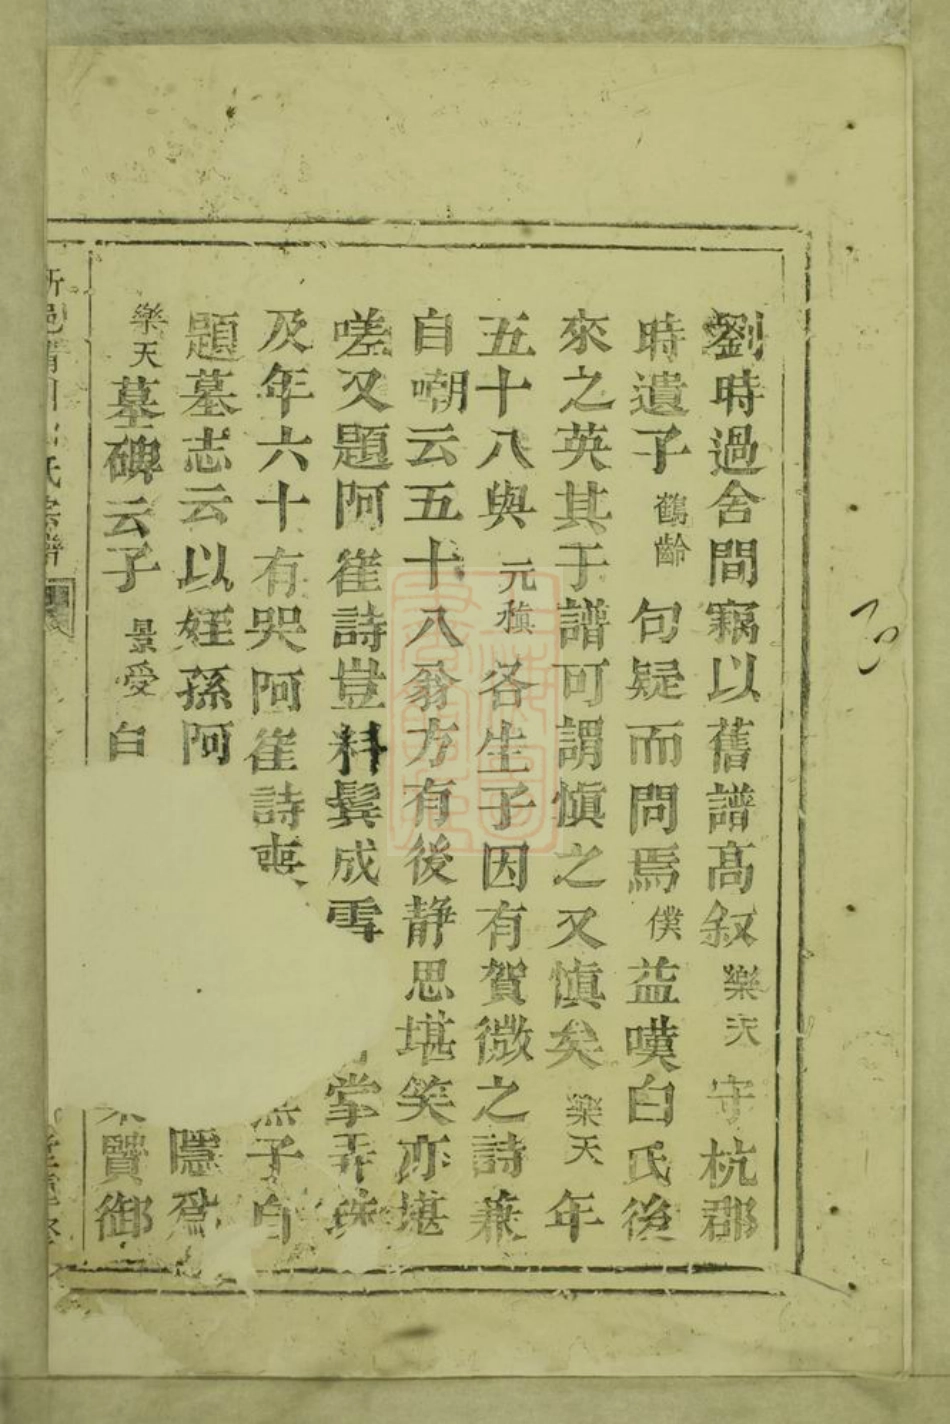 劉時過舍間竊以舊譜髙叙樂天守杭郡
時遺子鶴齡句疑而問焉僕益嘆白氏後
來之英其于譜可謂慎之又慎矣樂天年
五十八與元稹各生子因有賀微之詩兼
自嘲云五十八翁方有後静思堪笑亦堪
嗟又題阿崔詩豈料鬓成雪掌弄珠
及年六十有哭阿崔詩喪子自
題墓志云以姪孫阿隱爲
樂天墓碑云子景受白賢御
氏宗譜